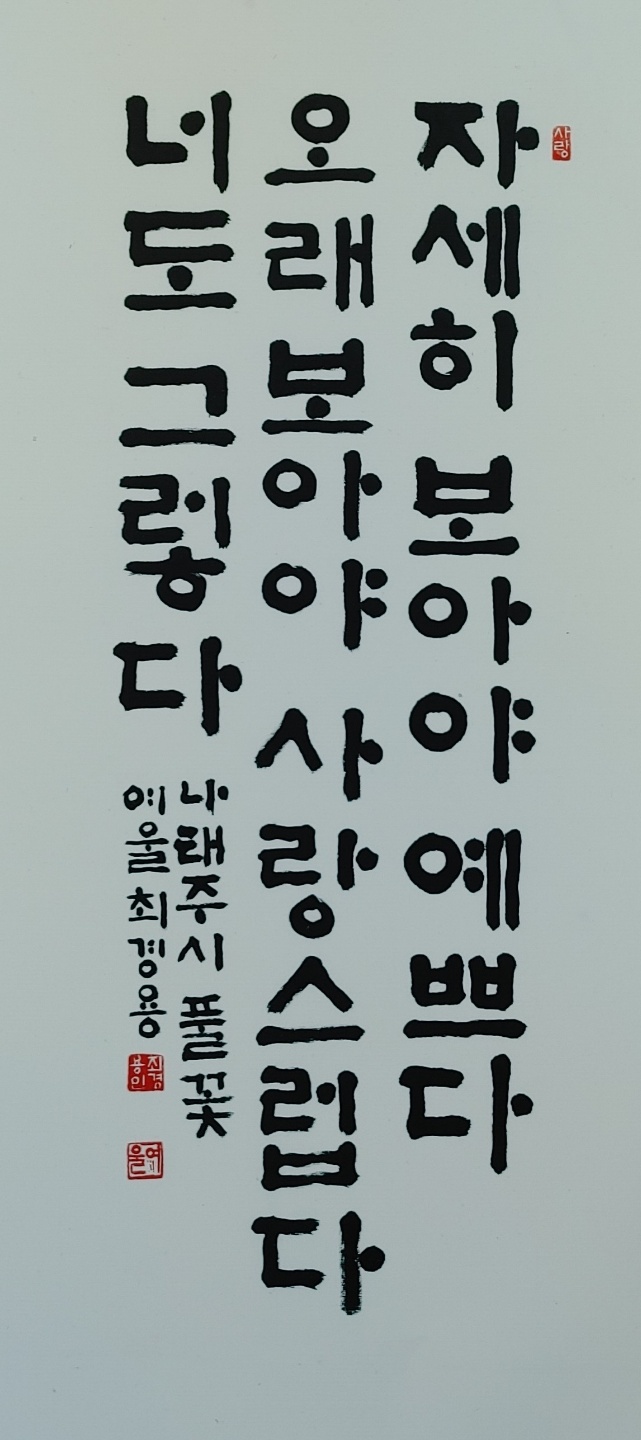 사랑
자세히 보아야 예쁘다
오래 보아야 사랑스럽다
너도 그렇다
나태주 시 풀꽃
예울 최경용
최경용인
예울